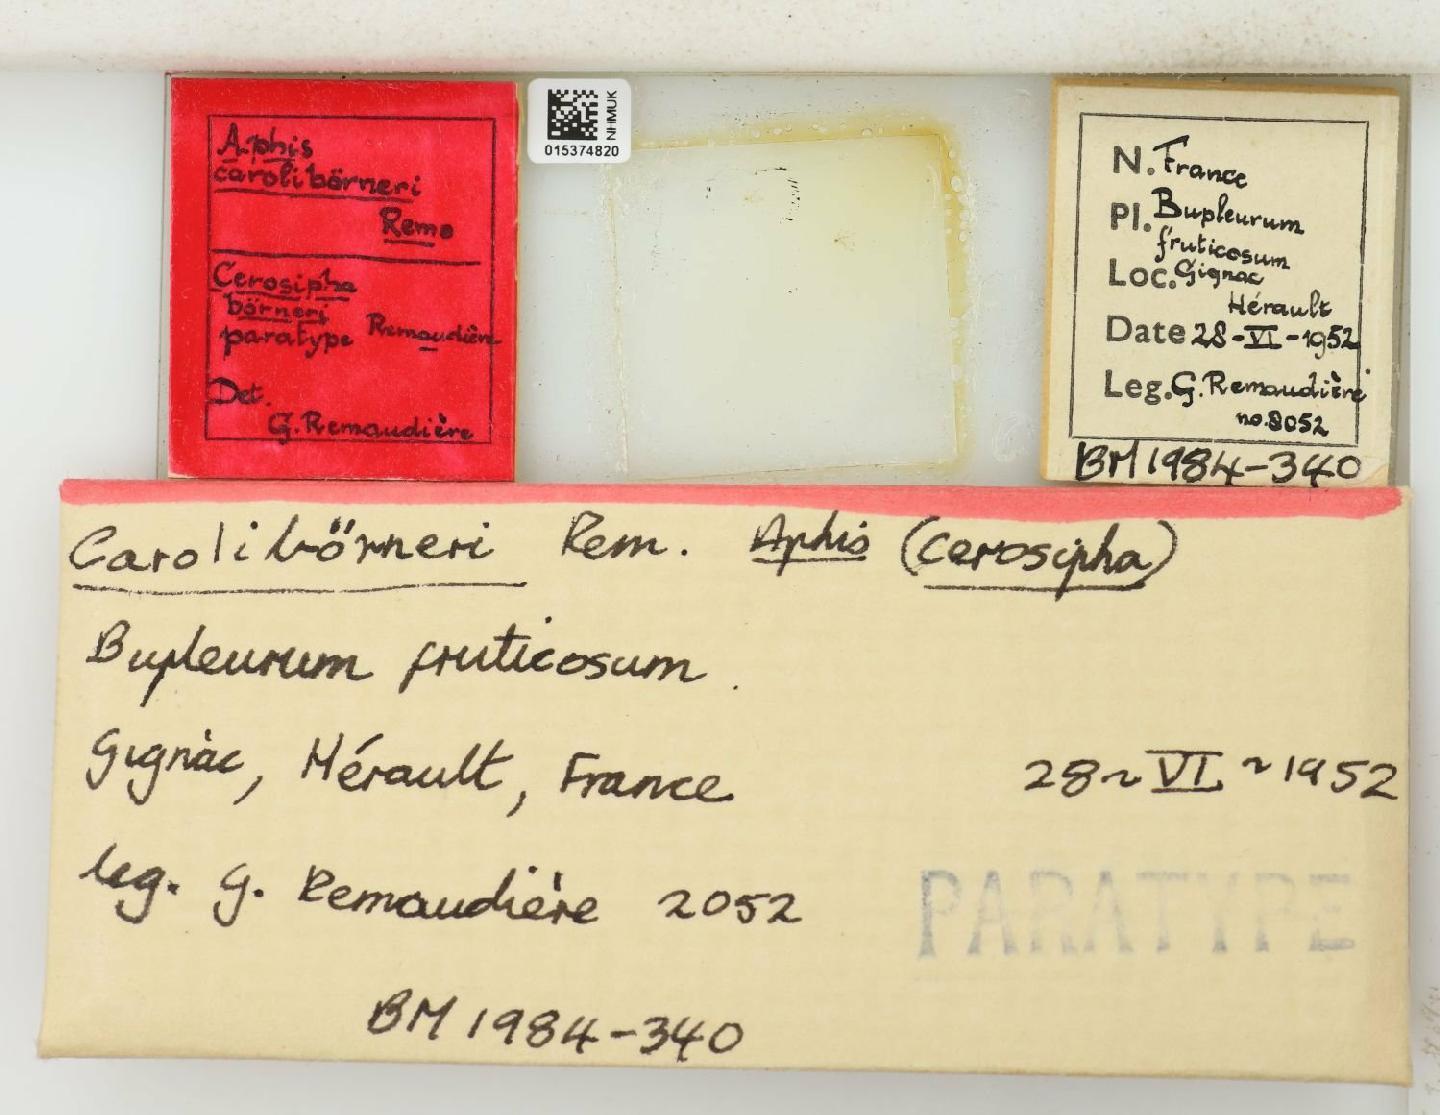 Aphis
carolibörneri
Remo
Cerosipha
börneri
paratype Remaudière
Det.
G. Remaudière
NHMUK
015374820
N. France
Pl. Bupleurum
fruticosum
Loc. Gignac
Hérault
Date 28-VI-1952
Leg. G. Remaudière
no. 2052
BM 1984-340
Carolibörneri Rem. Aphis (Cerosipha)
Bupleurum fruticosum.
Gignac, Hérault, France 28~VI~1952
leg. G. Remaudière 2052
PARATYPE
BM 1984-340